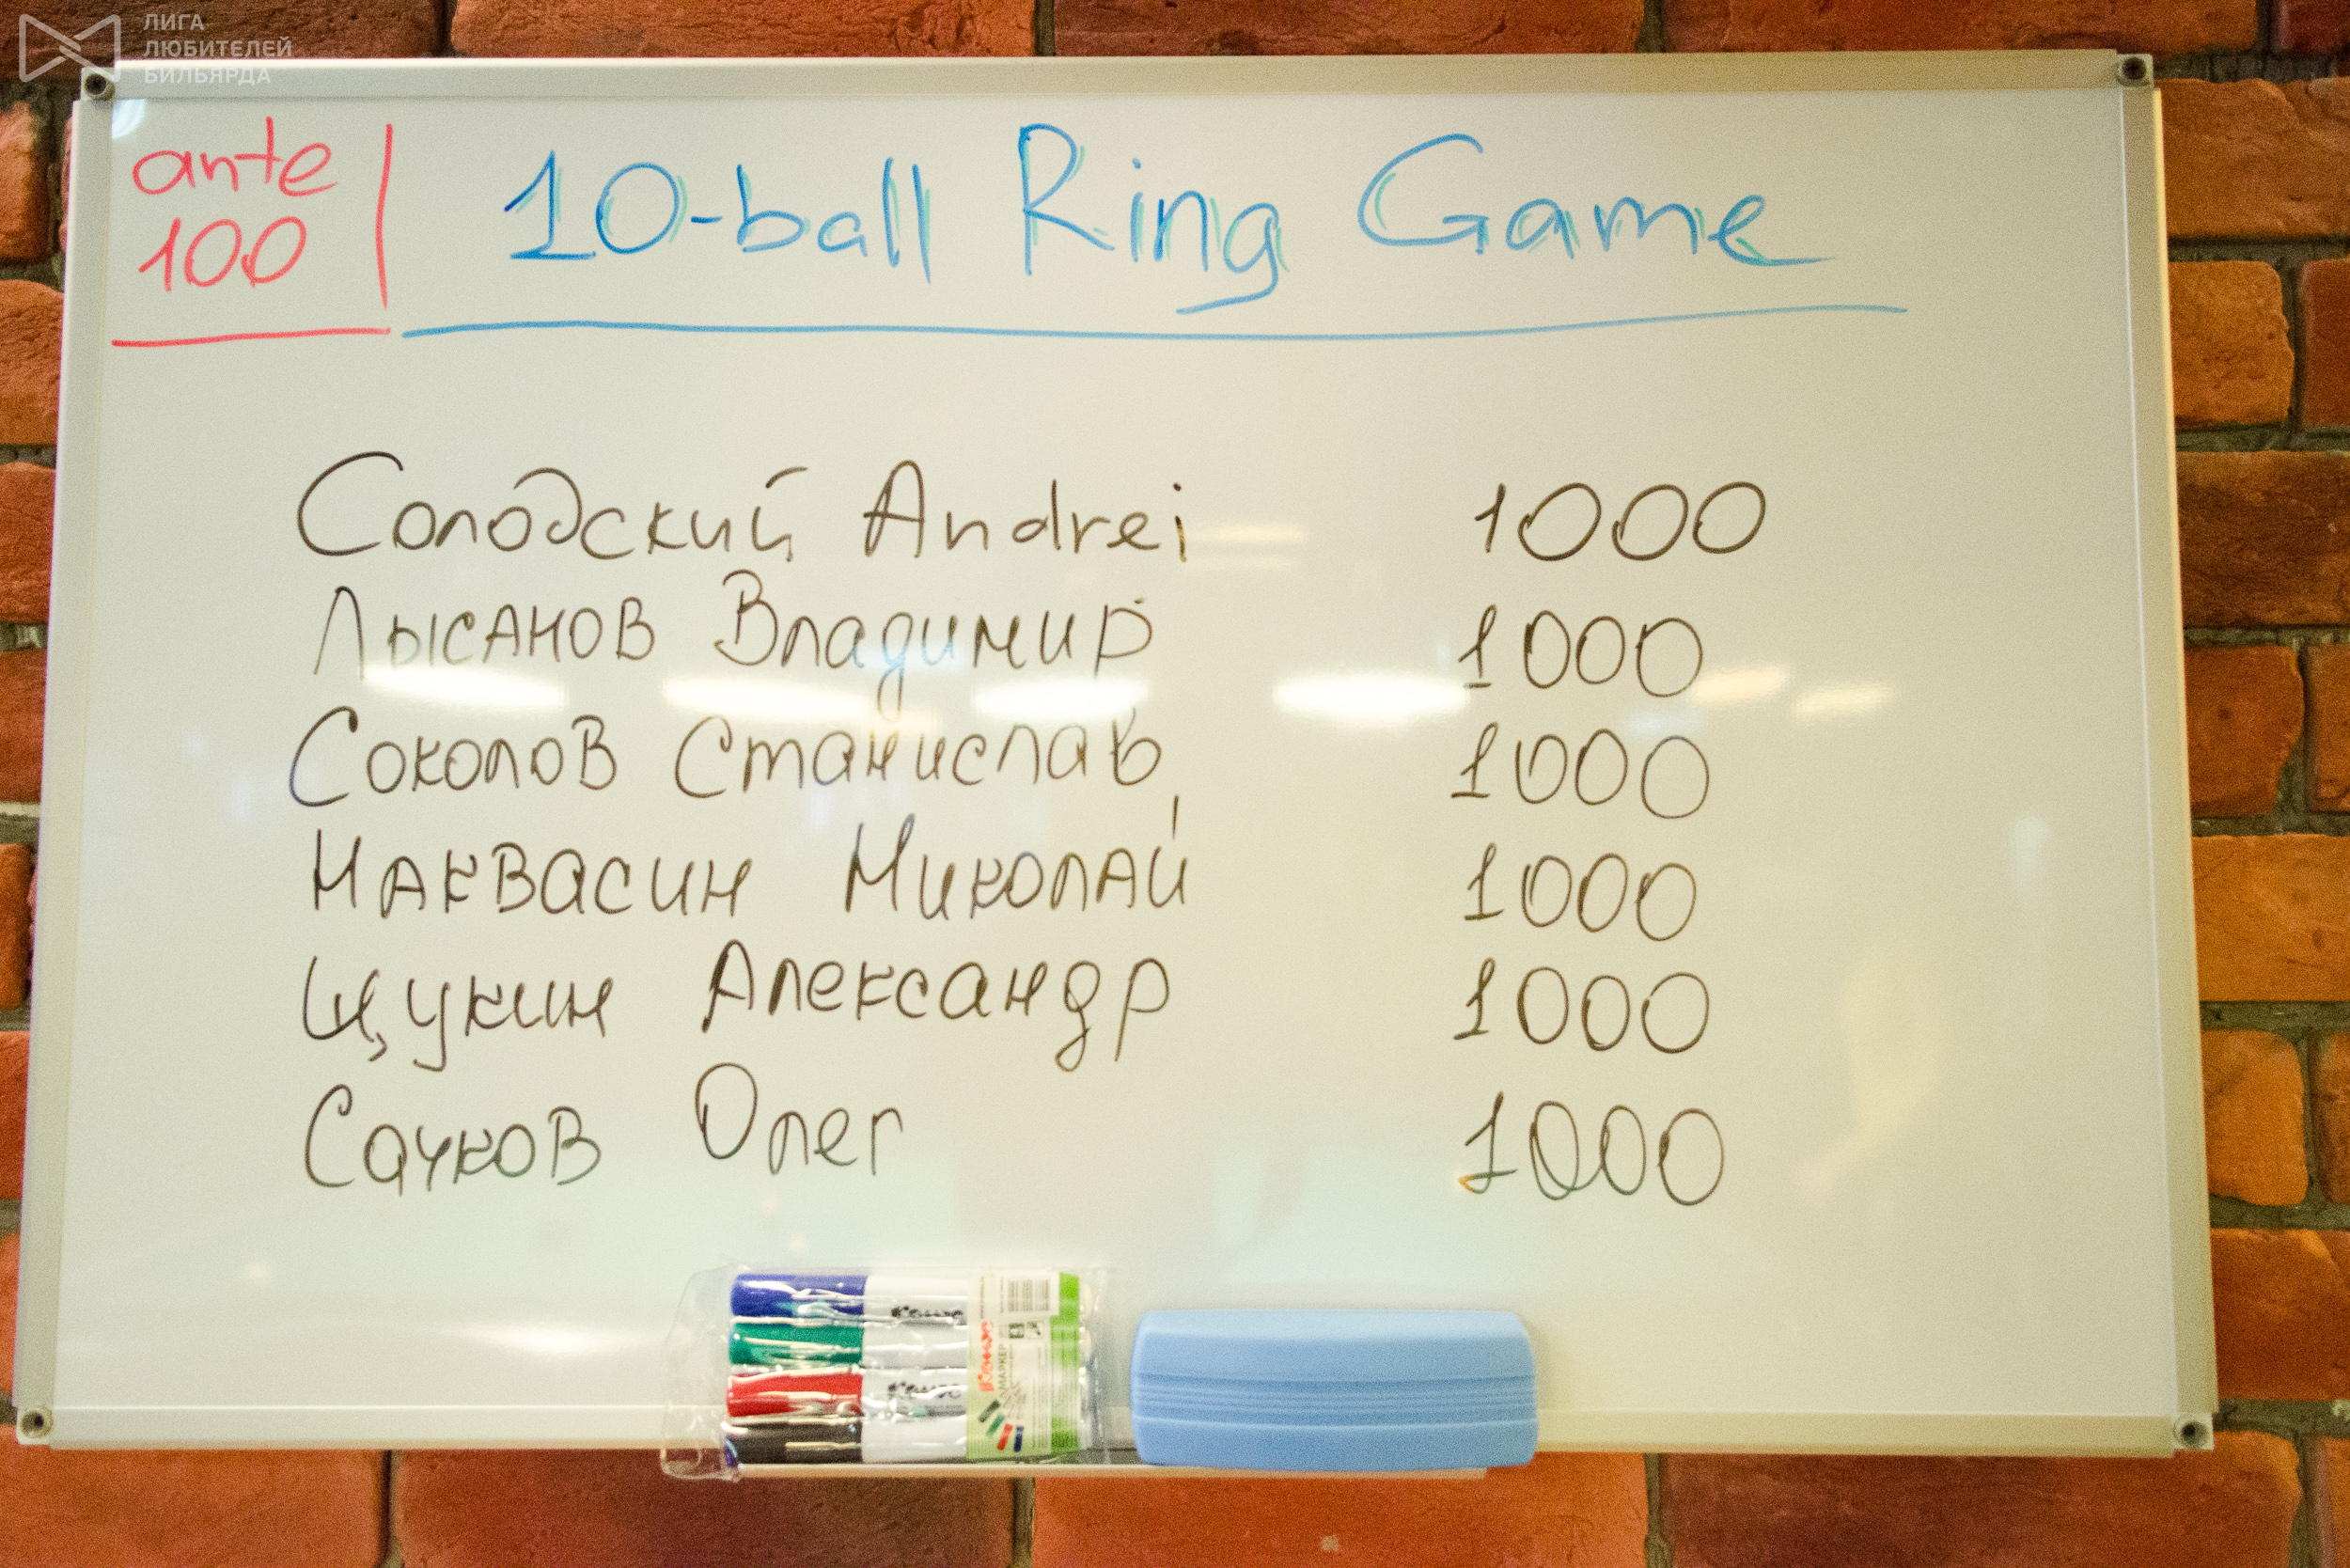 ЛИГА
ЛЮБИТЕЛЕЙ
БИЛЬЯРДА
ante
100
10-ball Ring Game
Солодский Andrei 1000
Лысанов Владимир 1000
Соколов Станислав 1000
Наквасин Николай 1000
Щукин Александр 1000
Сачков Олег 1000
Комус
МАРКЕР
Комус
Комус